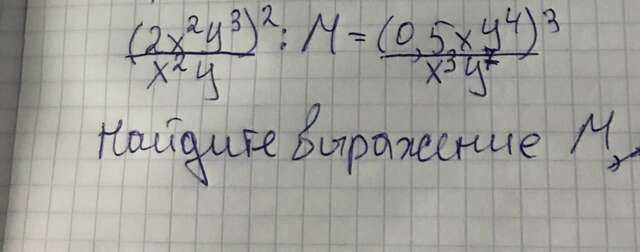 (2x²y³)² : M = (0,5xy⁴)³
x²y x³y⁷
Найдите выражение M